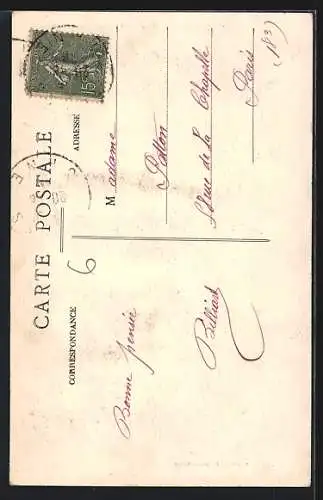 CARTE POSTALE
CORRESPONDANCE
ADRESSE
6
Bonne pensée
Billiard
Madame
Potton
rue de La Chapelle
Paris
(183)
15